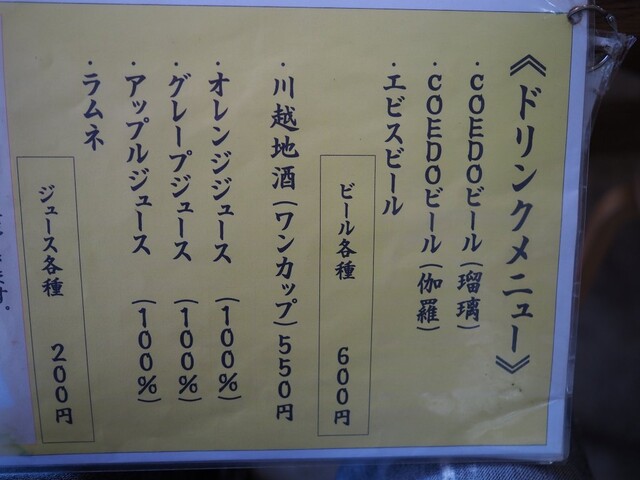 《ドリンクメニュー》
・COEDOビール(瑠璃)
・COEDOビール(伽羅)
・エビスビール
ビール各種 600円
・川越地酒(ワンカップ)550円
・オレンジジュース (100%)
・グレープジュース (100%)
・アップルジュース (100%)
・ラムネ
ジュース各種 200円
ます。